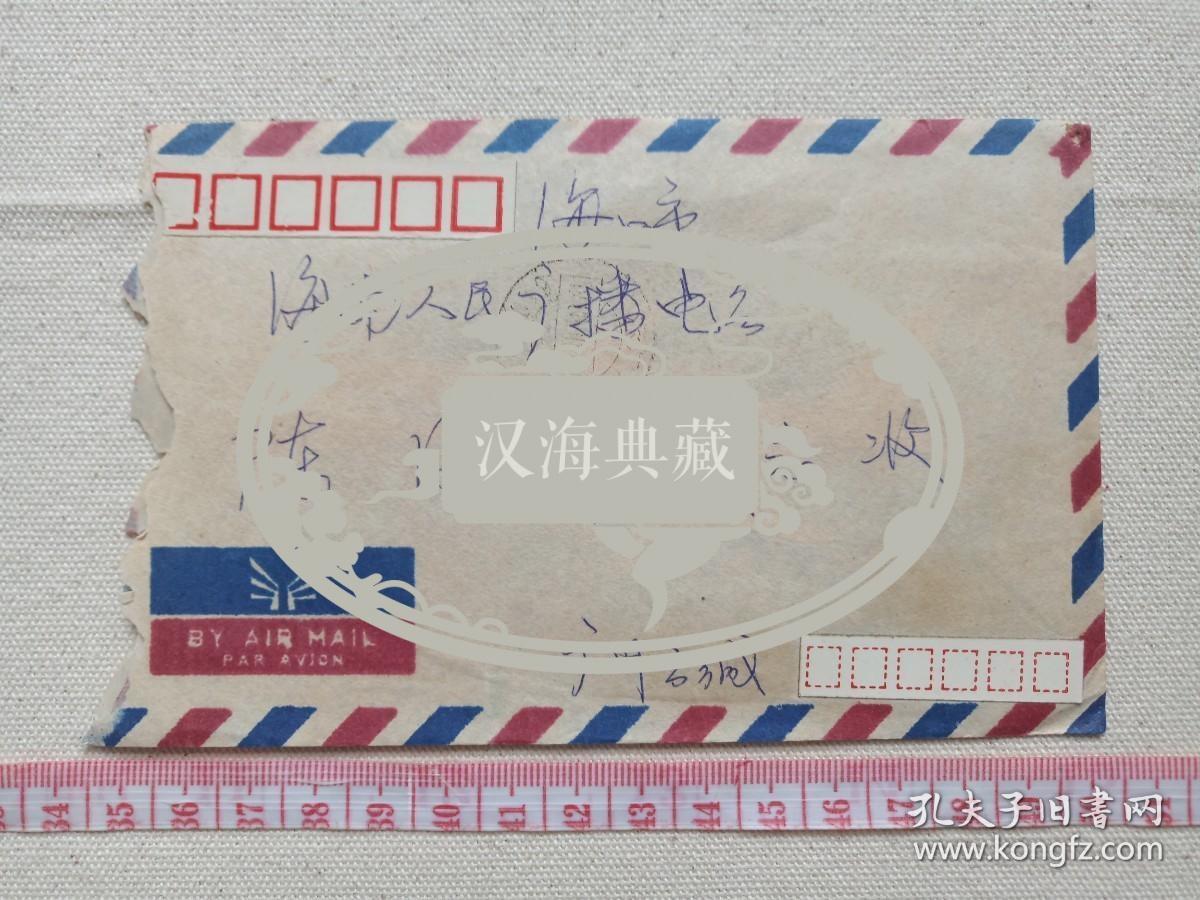 海口市
海南人民广播电台
陈
收
汉海典藏
BY AIR MAIL
PAR AVION
广州
34 35 36 37 38 39 40 41 42 43 44 45 46 47 48
孔夫子旧书网
www.kongfz.com